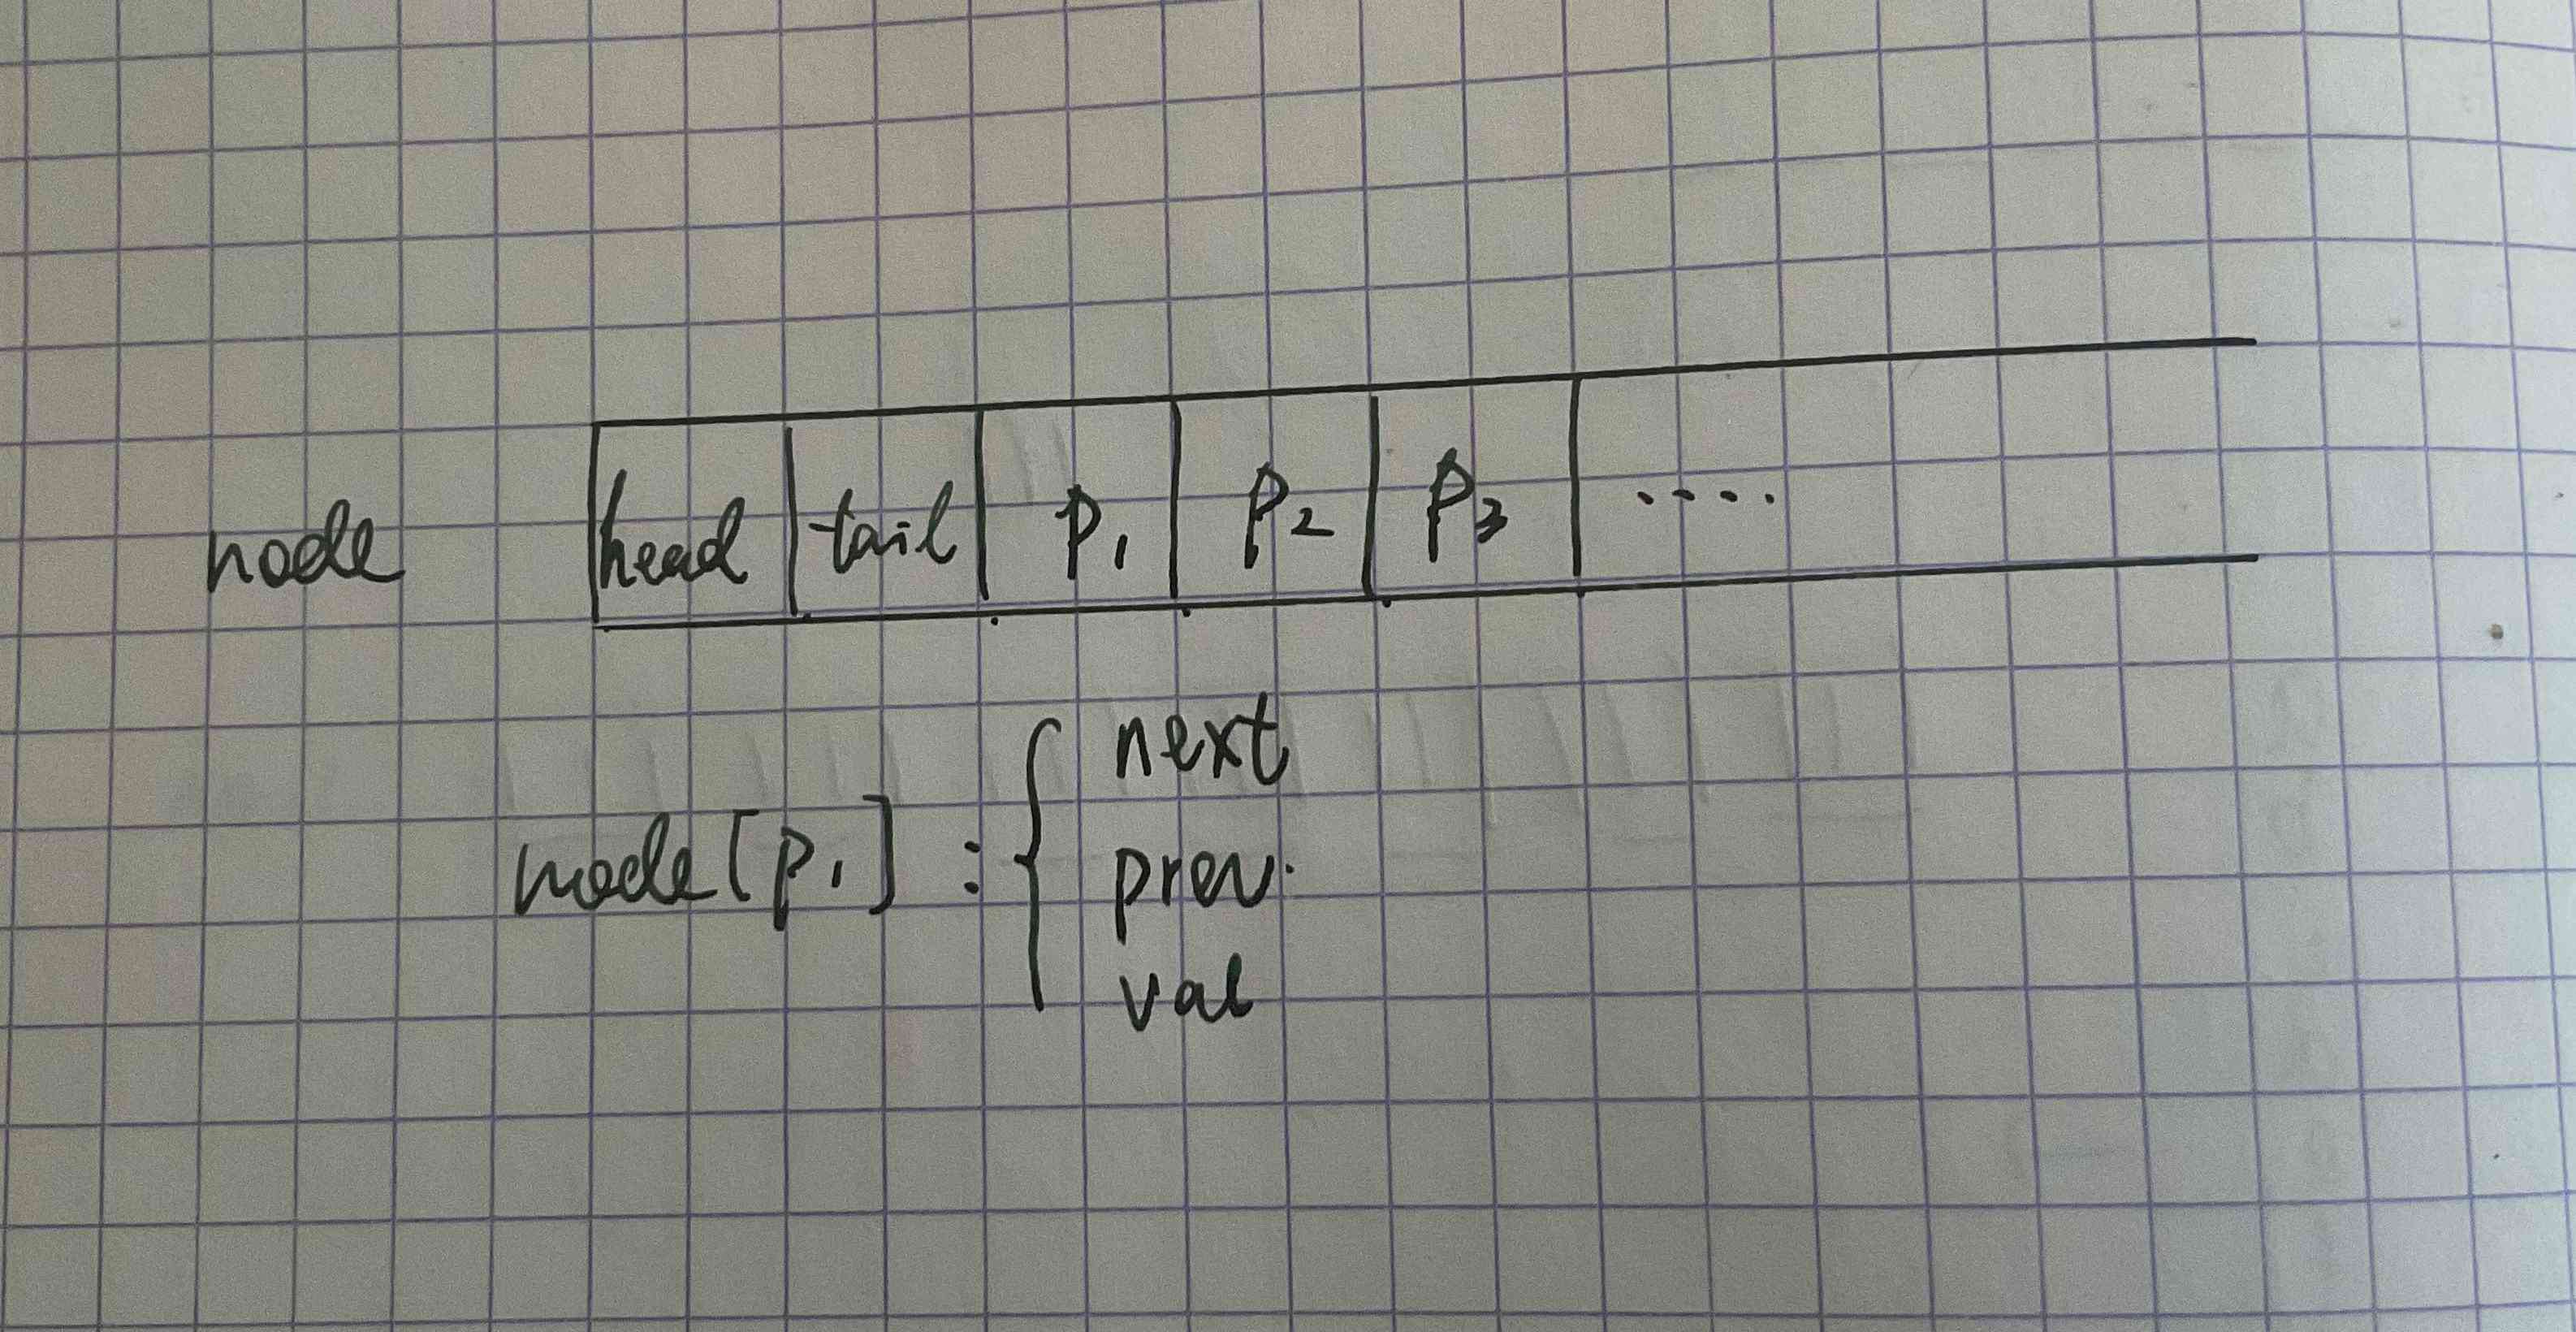 node head tail P1 P2 P3 ....
node[P1] : { next
prev.
val